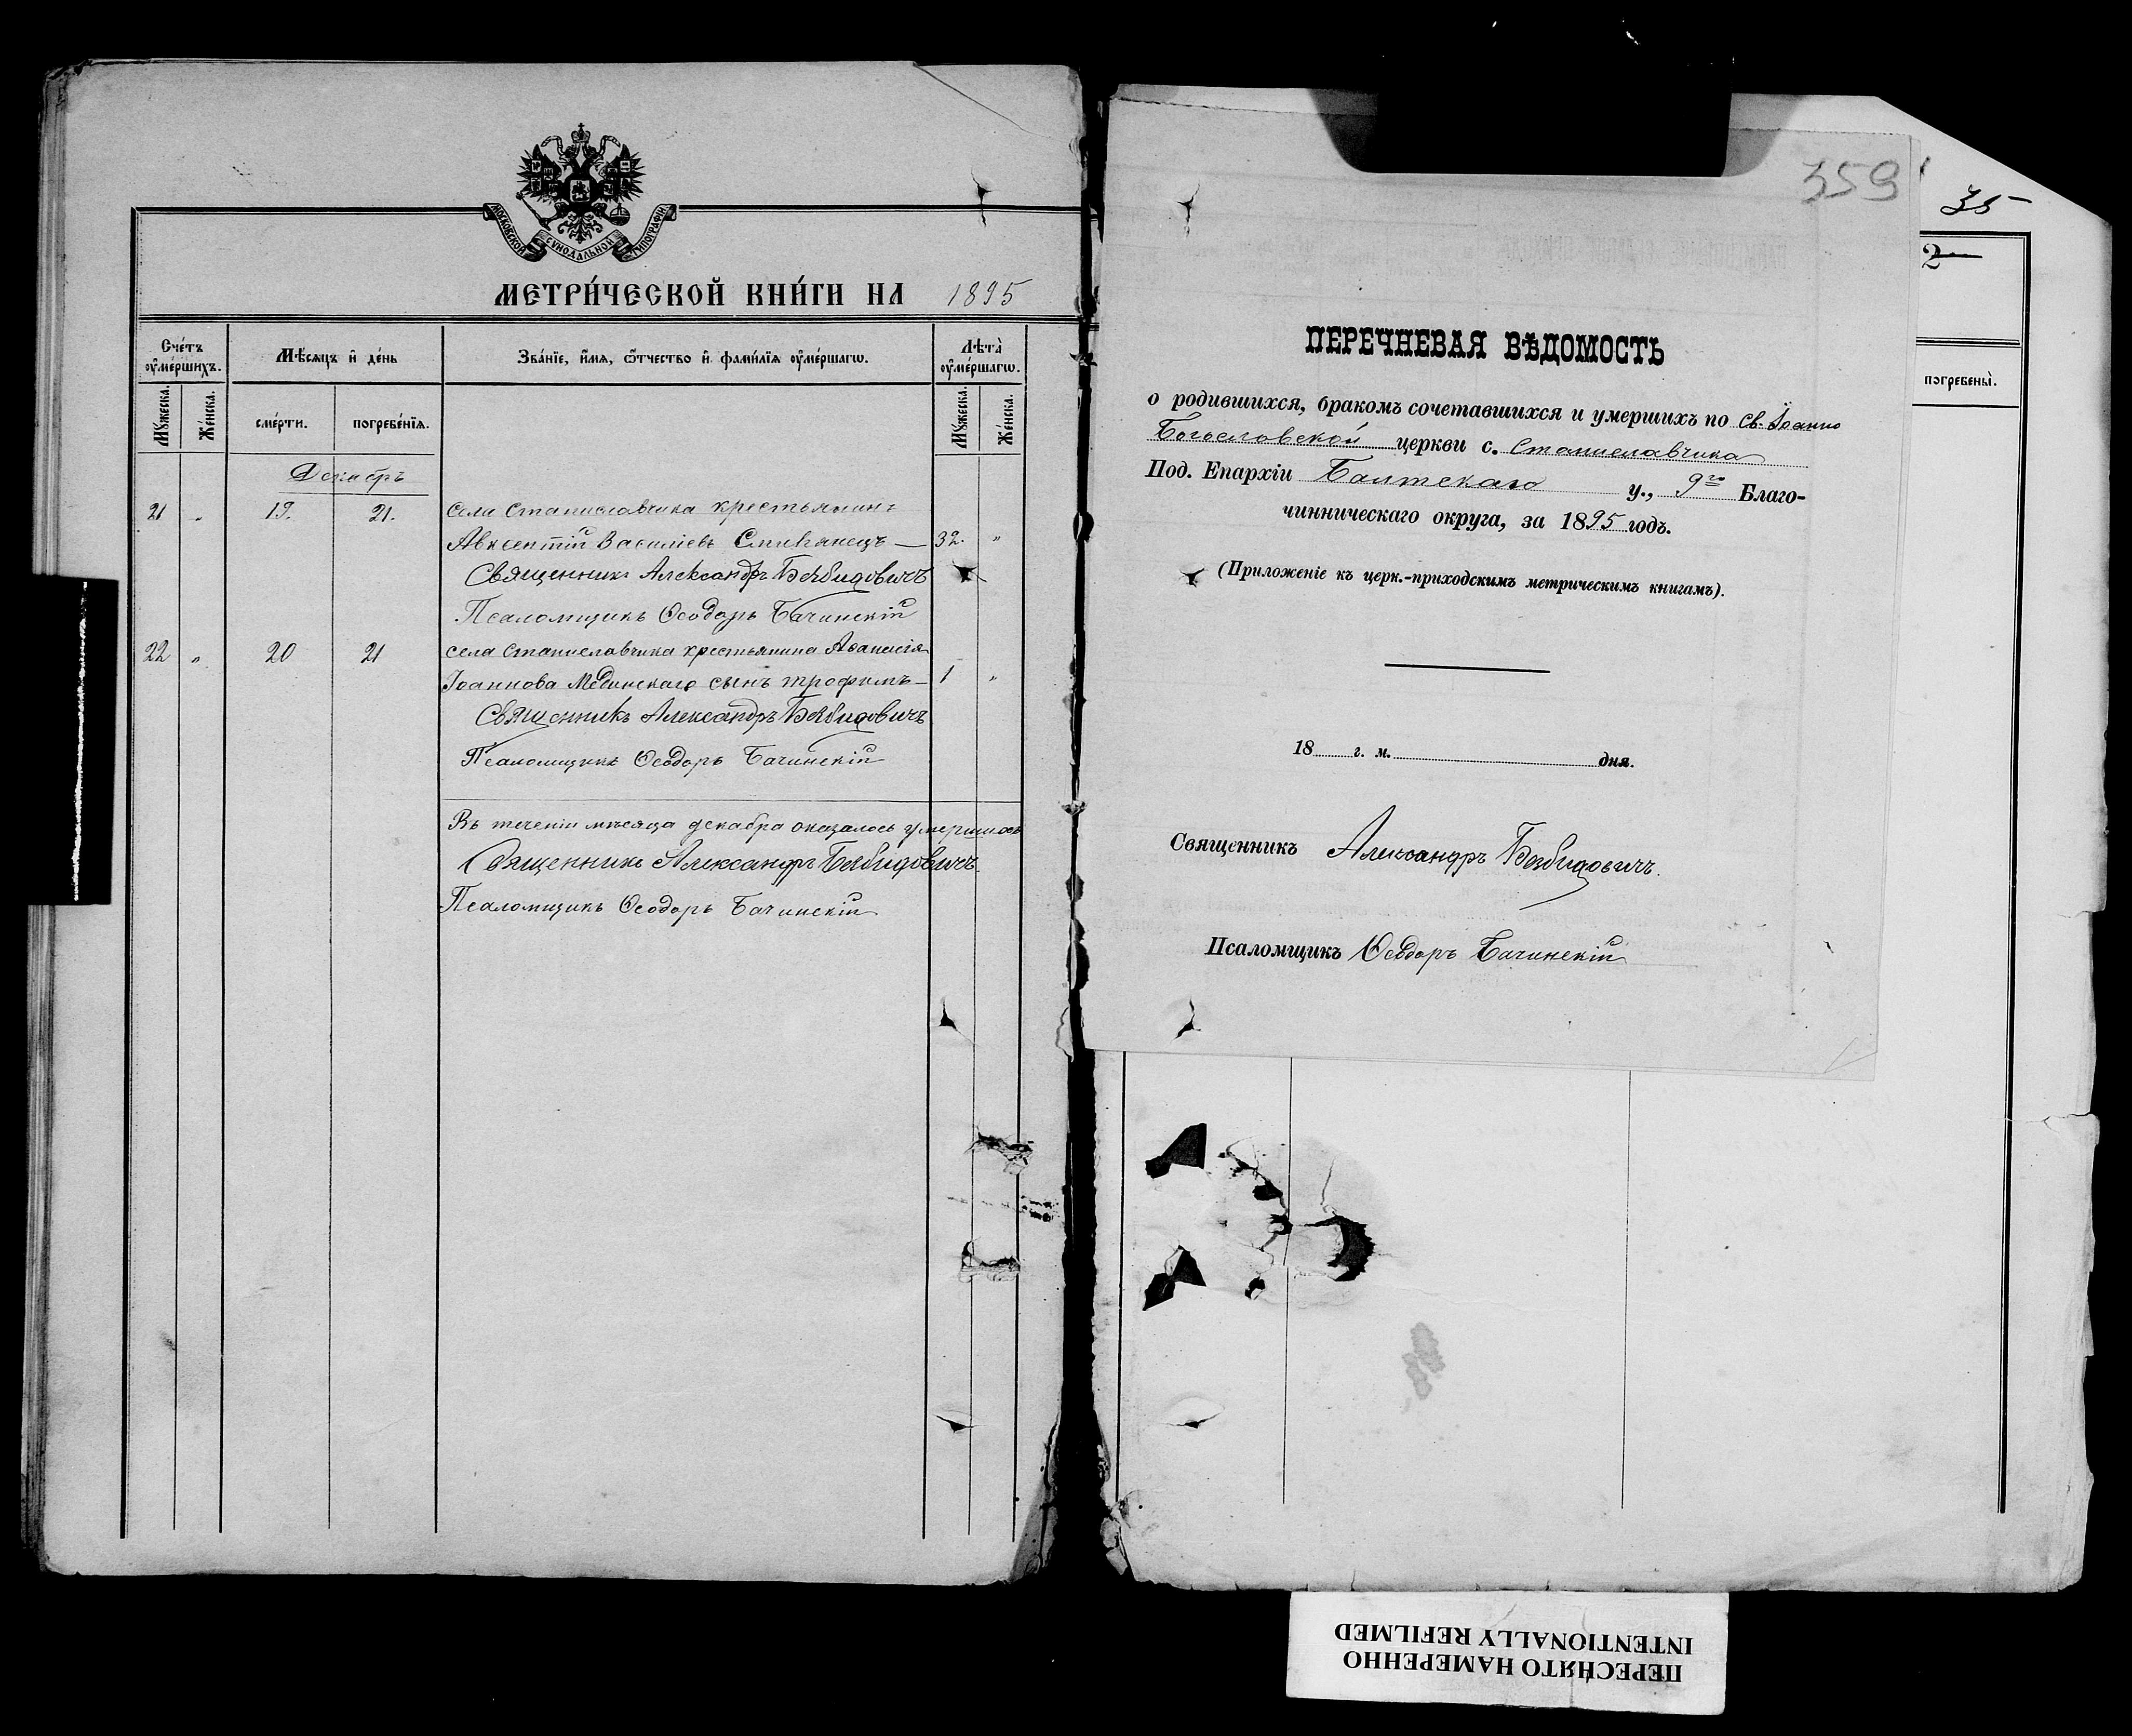 МОСКОВСКОЙ СѴНОДАЛЬНОЙ ТИПОГРАФІИ
МЕТРИ́ЧЕСКОЙ КНИ́ГИ НА 1895
Счéтъ ᲂу҆мéршихъ.
Мꙋ́жеска.
Жéнска.
Мѣ́сяцъ и҆ дéнь
смéрти.
погребéнїѧ.
Звáнїе, и҆́мѧ, ѻ҆́тчество и҆ фами́лїѧ ᲂу҆мéршагѡ.
Лѣ́та ᲂу҆мéршагѡ.
Мꙋ́жеска.
Жéнска.
Декабрь
21 " 19. 21. села Станиславчика крестьянинъ
Авксентій Василіевъ — 32. "
Священникъ Александръ
Псаломщикъ Ѳеодоръ Бачинскій
22 " 20 21 села Станиславчика крестьянина Аѳанасія
Іоаннова Мединскаго сынъ Трофимъ — 1 "
Священникъ Александръ
Псаломщикъ Ѳеодоръ Бачинскій
Въ теченіи мѣсяца декабра оказалось умершихъ
Священникъ Александръ
Псаломщикъ Ѳеодоръ Бачинскій
359
35
2
погребены̀.
ПЕРЕЧНЕВАЯ ВѢДОМОСТЬ
о родившихся, бракомъ сочетавшихся и умершихъ по Св.-Іоанно
Богословской церкви с. Станиславчика
Под. Епархіи Балтскаго у., 9го Благо-
чинническаго округа, за 1895 годъ.
(Приложеніе къ церк.-приходскимъ метрическимъ книгамъ).
18 г. м. дня.
Священникъ Александръ
Псаломщикъ Ѳеодоръ Бачинскій
ПЕРЕСНЯТО НАМЕРЕННО
INTENTIONALLY REFILMED